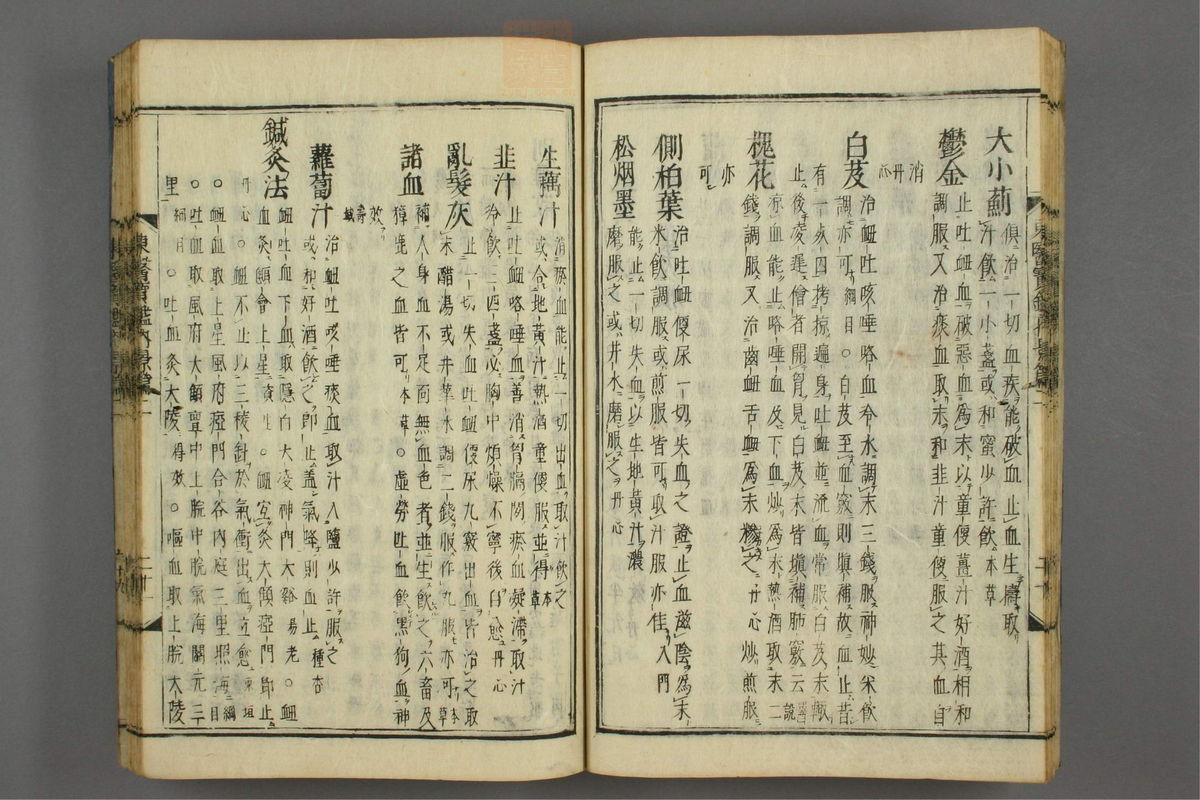 大小薊
俱治一切血疾能破血止血生擣取
汁飲一小盞或和蜜少許飲本草
鬱金
止吐血破惡血爲末以童便薑汁好酒相和
調服又治痰血取末和韭汁童便服之其血自
消丹心
白芨
治衄吐咳唾咯血冷水調末三錢服神妙米飲
調亦可綱目○白芨至血竅則塡補故血止昔
有一人因拷掠遍身吐衄並流血常服白芨末輒
止後凌遲僧者開胷見白芨末皆塡補肺竅云醫說
槐花
凉血能止咯唾血及下血炒爲末熱酒取末二
錢調服又治齒衄舌衄爲末糝之丹心炒煎服
亦可
側柏葉
治吐衄便尿一切失血之證止血滋陰爲末
米飲調服或煎服皆可取汁服亦佳入門
松烟墨
能止一切失血以生地黃汁濃
磨服之或井水磨服之丹心
生藕汁
消瘀血能止一切出血取汁飲之
或合地黃汁熱酒童便服並得本草
韭汁
止吐衄咯唾血善消胷膈間瘀血凝滯取汁
冷飲三四盞必胸中煩燥不寧後自愈丹心
亂髮灰
止一切失血吐衄便尿九竅出血皆治之取
末醋湯或井華水調二錢服作丸服亦可本草
諸血
補人身血不足面無血色者並生飲之六畜及
獐鹿之血皆可本草○虛勞吐血飲黑狗血神
效壽域
蘿蔔汁
治衄吐咳唾痰血取汁入鹽少許服之
或和好酒飲之卽止盖氣降則血止種杏
鍼灸法
衄吐血下血取隱白大凌神門大谿易老○衄
血灸顖會上星資生○衄血灸大顀瘂門卽止
丹心○衄不止以三稜針於氣衝出血立愈東垣
○衄血取上星風府瘂門合谷內庭三里照海綱目
○吐血取風府大顀膻中上脘中脘氣海關元三
里綱目○吐血灸大陵得效○嘔血取上脘大陵